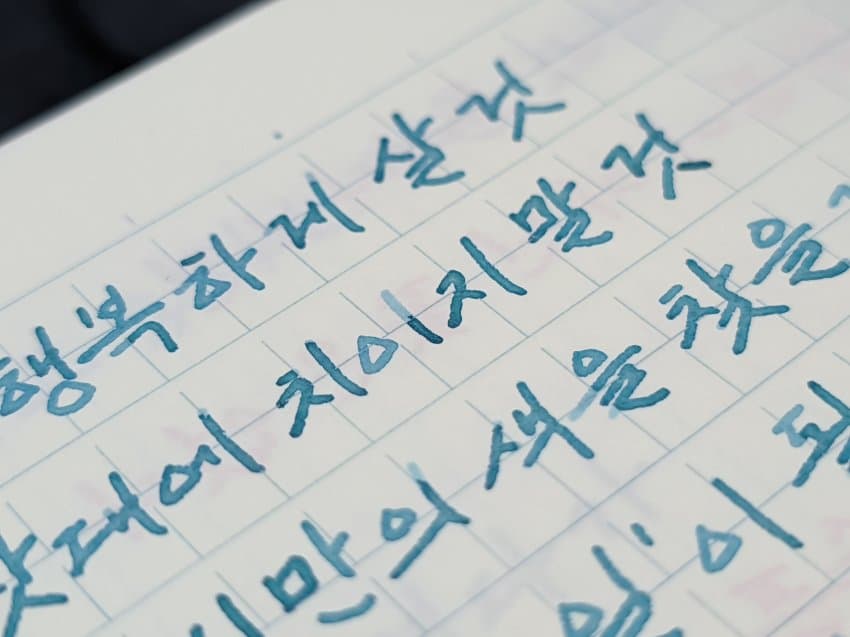 행복하게 살 것
잣대에 치이지 말 것
만의 색을 찾을